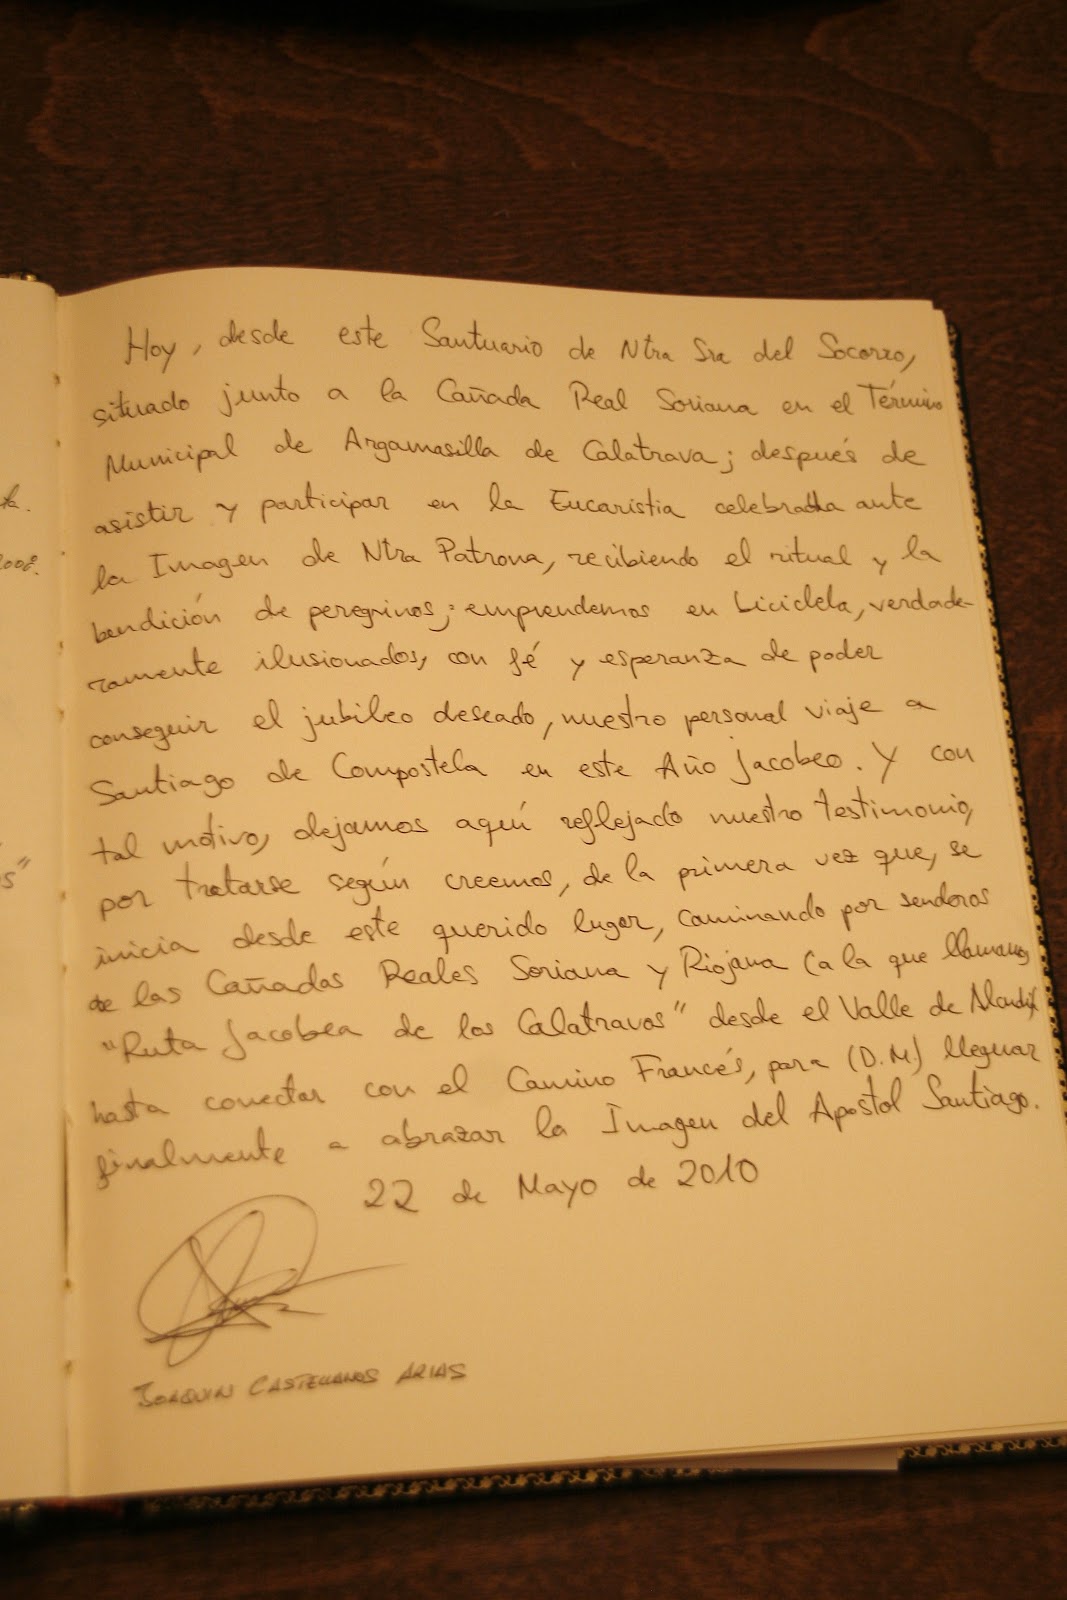 Hoy, desde este Santuario de Ntra Sra del Socorro,
situado junto a la Cañada Real Soriana en el Término
Municipal de Argamasilla de Calatrava; después de
asistir y participar en la Eucaristia celebrada ante
la Imagen de Ntra Patrona, recibiendo el ritual y la
bendición de peregrinos; emprendemos en bicicleta, verdade-
ramente ilusionados, con fé y esperanza de poder
conseguir el jubileo deseado, nuestro personal viaje a
Santiago de Compostela en este Año Jacobeo. Y con
tal motivo, dejamos aquí reflejado nuestro testimonio,
por tratarse según creemos, de la primera vez que, se
inicia desde este querido lugar, caminando por senderos
de las Cañadas Reales Soriana y Riojana (a la que llamamos
"Ruta Jacobea de los Calatravos" desde el Valle de Alcudia
hasta conectar con el Camino Francés, para (D.M.) lleguar
finalmente a abrazar la Imagen del Apostol Santiago.
22 de Mayo de 2010
JOAQUIN CASTELLANOS ARIAS